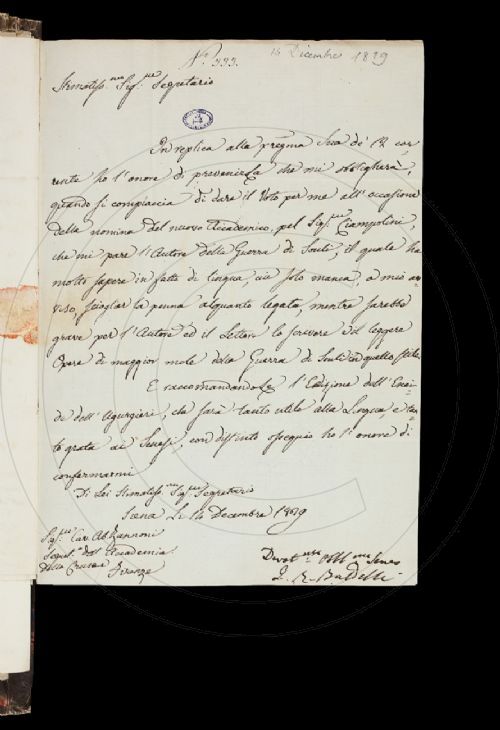 N.° 333.
14 Dicembre 1829
Stimatiss.mo Sig.re Segretario
In replica alla pregma Sua de' 12 cor-
rente ho l'onore di prevenirla che mi obbligherà,
quando si compiaccia di dare il Voto per me all'occasione
della nomina del nuovo Accademico, pel Sig.re Ciampolini,
che mi pare l'Autore della Guerra di Souli, il quale ha
molto sapere in fatto di lingua, cui solo manca, a mio av-
viso, scioglier la penna alquanto legata, mentre sarebbe
grave per l'Autore ed il Lettore lo scrivere ed leggere
Opera di maggior mole della Guerra di Souli in quello stile.
E raccomandandole l'Edizione dell'Enei-
de dell'Agurgieri, che sarà tanto utile alla Lingua, e tan-
to grata ai Senesi, con distinto ossequio ho l'onore di
confermarmi
Di Lei Stimatiss.mo Sig.re Segretario
Siena Li 14 Decembre 1829
Sig.re Cav. Ab. Zannoni
Segret.o dell'Accademia
della Crusca Firenze
Devot.mo Obb.mo Serv.
Baldelli